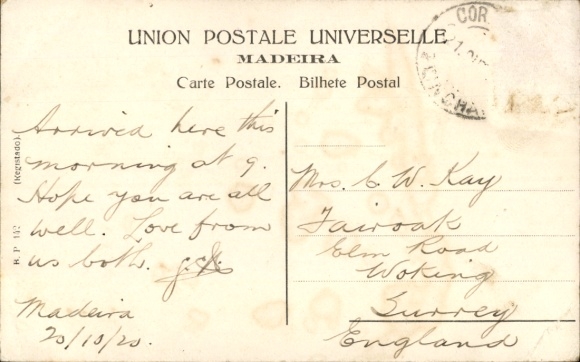 UNION POSTALE UNIVERSELLE
MADEIRA
Carte Postale. Bilhete Postal
COR
FUNCHAL
(Registado)
B. P. 142
Arrived here this
morning at 9.
Hope you are all
well. Love from
us both.
Madeira
20/10/20.
Mrs. C. W. Kay
Fairoak
Elm Road
Woking
Surrey
England